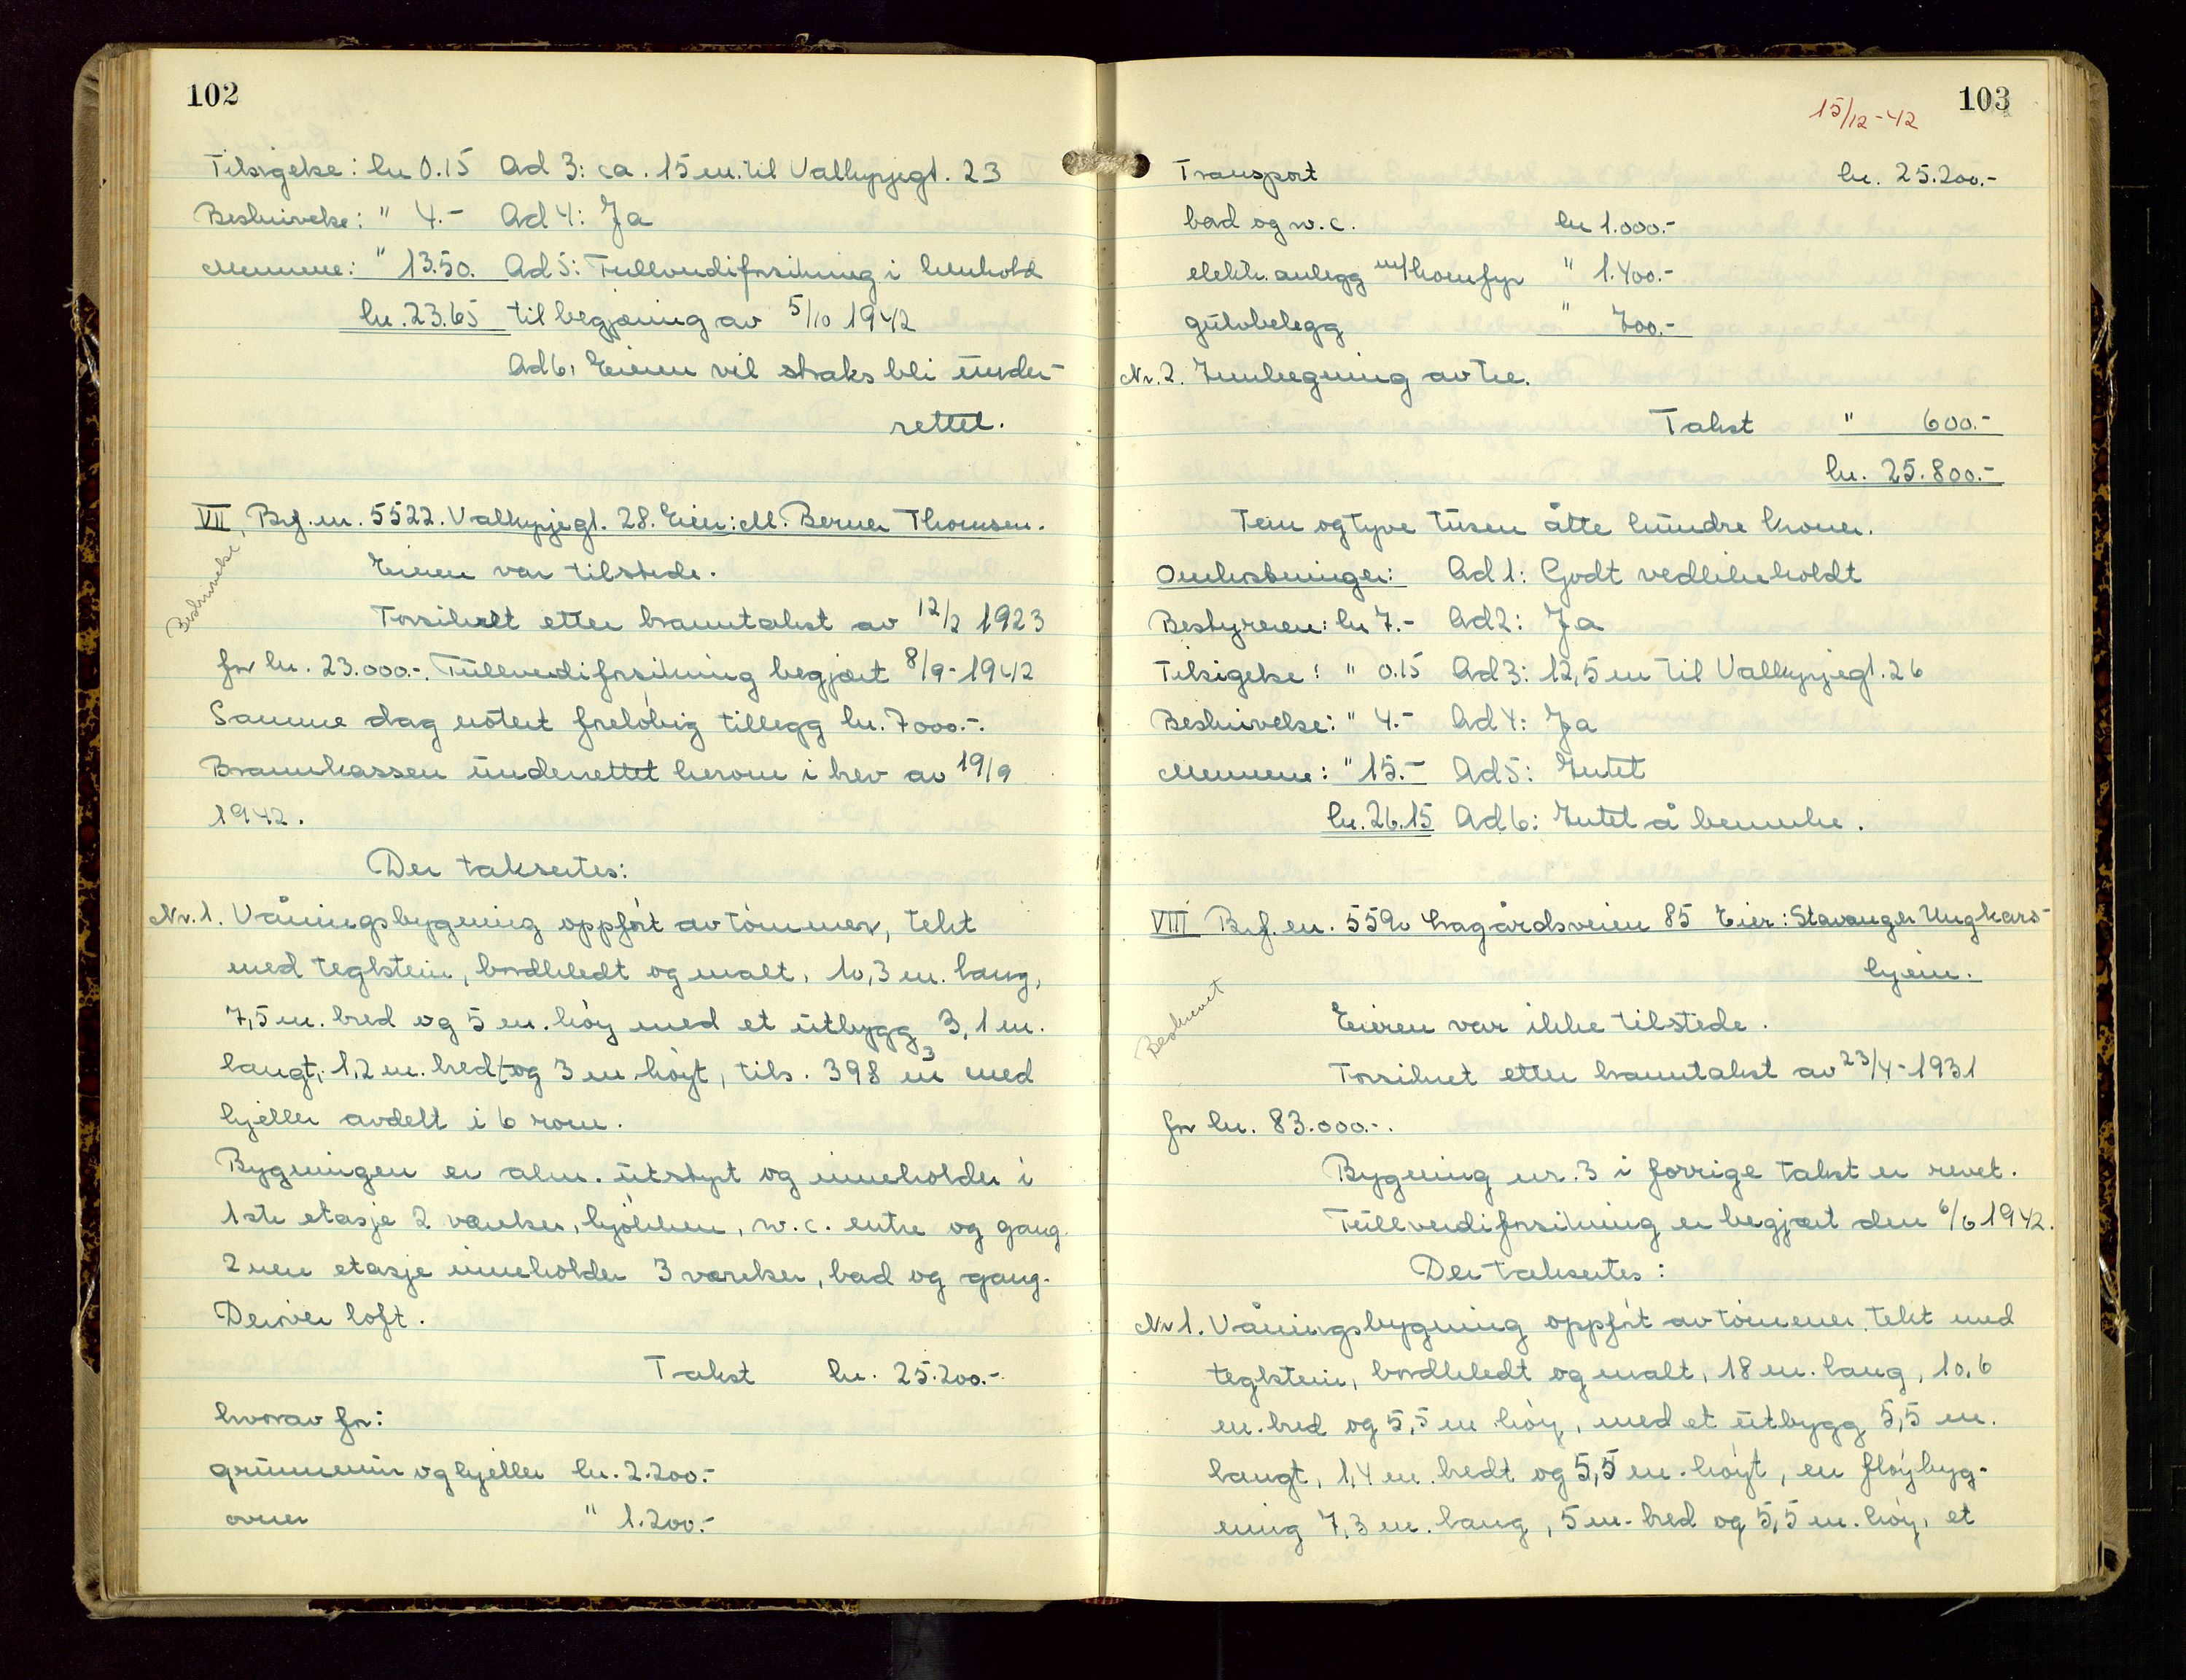 102
Tilsigelse: kr 0.15 Ad 3: ca. 15 m. til Valkyrjegt. 23
Beskrivelse: " 4.- Ad 4: Ja
Mennene: " 13.50. Ad 5: Fullverdiforsikring i henhold
kr. 23.65 til begjæring av 5/10 1942
Ad 6: Eieren vil straks bli under-
rettet.
VII, Brf. nr. 5522. Valkyrjegt. 28. Eier: M. Berner Thomsen.
Beskrivelse
Eieren var tilstede.
Forsikret etter branntakst av 12/2 1923
for kr. 23.000.-. Fullverdiforsikring begjært 8/9-1942
Samme dag notert foreløbig tillegg kr. 7000.-.
Brannkassen underrettet herom i brev av 19/9
1942.
Der takseres:
Nr. 1. Våningsbygning oppført av tømmer, tekt
med teglstein, bordkledt og malt, 10,3 m. lang,
7,5 m. bred og 5 m. høy med et utbygg 3,1 m.
langt, 1,2 m. bredt og 3 m høyt, tils. 398 m³ med
kjeller avdelt i 6 rom.
Bygningen er alm. utstyrt og inneholder i
1ste etasje 2 værelser, kjøkken, w.c. entre og gang.
2nen etasje inneholder 3 værelser, bad og gang.
Derover loft.
Takst kr. 25.200.-
hvorav for:
grunnmur og kjeller kr. 2.200.-
ovner " 1.200.-
103
15/12-42
Transport kr. 25.200.-
bad og w.c. kr 1.000.-
elektr. anlegg m/komfyr " 1.400.-
gulvbelegg " 700.-
Nr. 2. Innhegning av tre.
Takst " 600.-
kr. 25.800.-
Fem og tyve tusen åtte hundre kroner.
Omkostninger: Ad 1: Godt vedlikeholdt
Bestyreren: kr 7.- Ad 2: Ja
Tilsigelse: " 0.15 Ad 3: 12,5 m til Valkyrjegt. 26
Beskrivelse: " 4.- Ad 4: Ja
Mennene: " 15.- Ad 5: Intet
kr. 26.15 Ad 6: Intet å bemerke.
VIII Brf. nr. 559o Lagårdsveien 85 Eier: Stavanger Ungkars-
hjem.
Beskrevet
Eieren var ikke tilstede.
Forsikret etter branntakst av 23/4-1931
for kr. 83.000.-.
Bygning nr. 3 i forrige takst er revet.
Fullverdiforsikring er begjært den 6/6 1942.
Der takseres:
Nr 1. Våningsbygning oppført av tømmer, tekt med
teglstein, bordkledt og malt, 18 m. lang, 10,6
m. bred og 5,5 m høy, med et utbygg 5,5 m.
langt, 1,4 m. bredt og 5,5 m. høyt, en fløybyg-
ning 7,3 m. lang, 5 m. bred og 5,5 m. høy, et